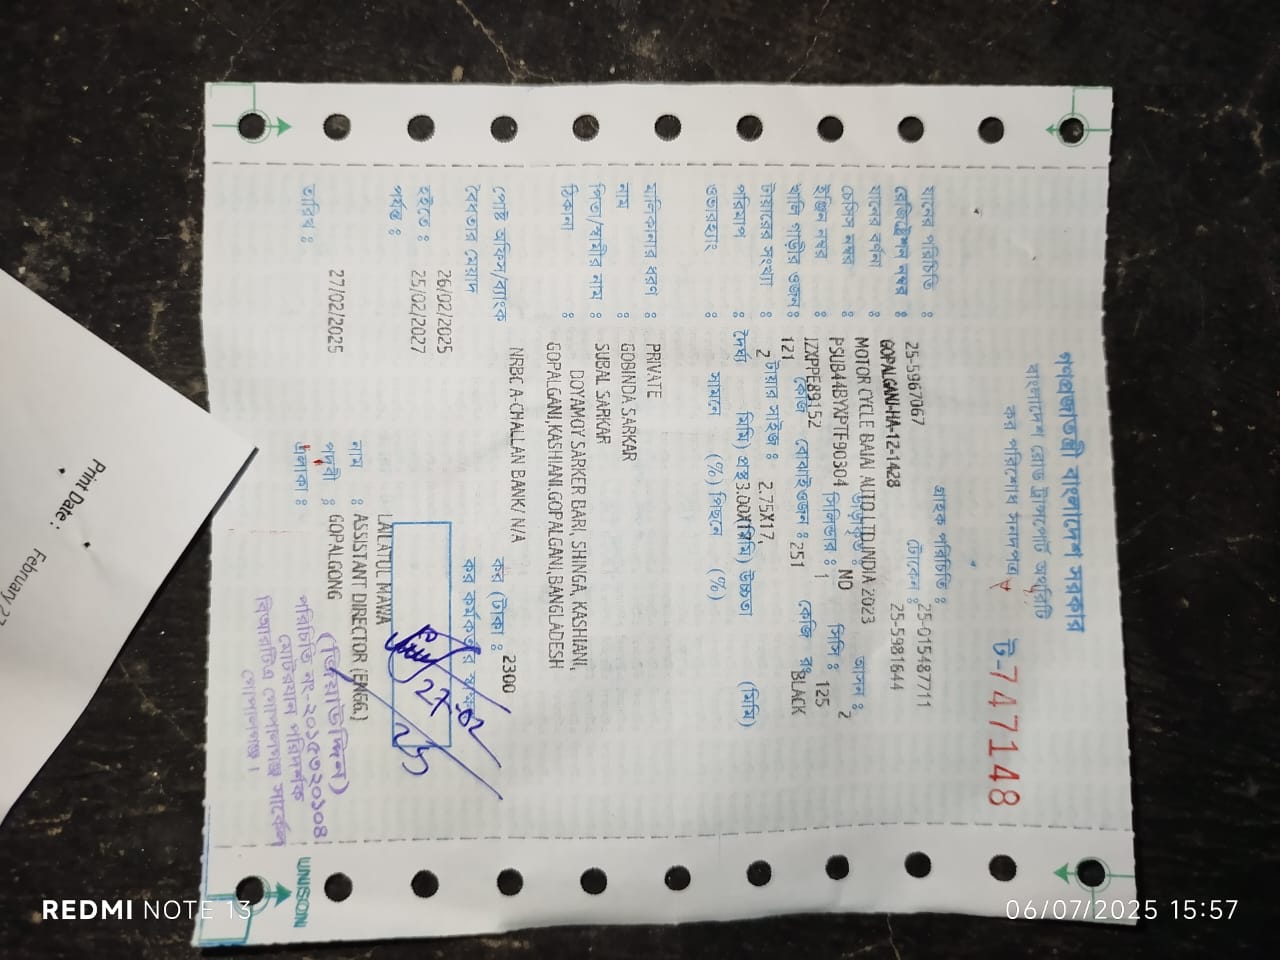 গণপ্রজাতন্ত্রী বাংলাদেশ সরকার
বাংলাদেশ রোড ট্রান্সপোর্ট অথরিটি
কর পরিশোধ সনদপত্র
ট-747148
গ্রাহক পরিচিতি : 25-015487711
যানের পরিচিতি : 25-5967067 টোকেন : 25-5981644
রেজিষ্ট্রেশন নম্বর : GOPALGANJ-HA-12-1428
যানের বর্ণনা : MOTOR CYCLE BAJAJ AUTO LTD,INDIA 2023 আসন : 2
চেসিস নম্বর : PSUB44BYXPTF90304 NO
ইঞ্জিন নম্বর : JZXPPE89152 সিলিন্ডার : 1 সিসি : 125
খালি গাড়ীর ওজন : 121 কেজি বোঝাই ওজন : 251 কেজি রং BLACK
টায়ারের সংখ্যা : 2 টায়ার সাইজ : 2.75X17,
পরিমাপ : দৈর্ঘ্য মিমি) প্রস্থ 3.00X1 মিমি) উচ্চতা (মিমি)
ওভারহ্যাং : সামনে (%) পিছনে (%)
মালিকানার ধরণ : PRIVATE
নাম : GOBINDA SARKAR
পিতা/স্বামীর নাম : SUBAL SARKAR
ঠিকানা : DOYAMOY SARKER BARI, SHINGA, KASHIANI,
GOPALGANJ,KASHIANI,GOPALGANJ,BANGLADESH
পোষ্ট অফিস/ব্যাংক : NRBC A-CHALLAN BANK/ N/A
কর (টাকা : 2300
বৈধতার মেয়াদ
হইতে : 26/02/2025
পর্যন্ত : 25/02/2027
কর কর্মকর্তার স্বাক্ষর
27-02
25
তারিখ : 27/02/2025
নাম : LAILATUL MAWA
পদবী : ASSISTANT DIRECTOR (ENGG.)
এলাকা : GOPALGONG
পরিচিতি নং-২০১৫৭২০১০৪
মোটরযান পরিদর্শক
বিআরটিএ গোপালগঞ্জ সার্কেল
গোপালগঞ্জ।
UNISON
Print Date : February 27
REDMI NOTE 13
06/07/2025 15:57